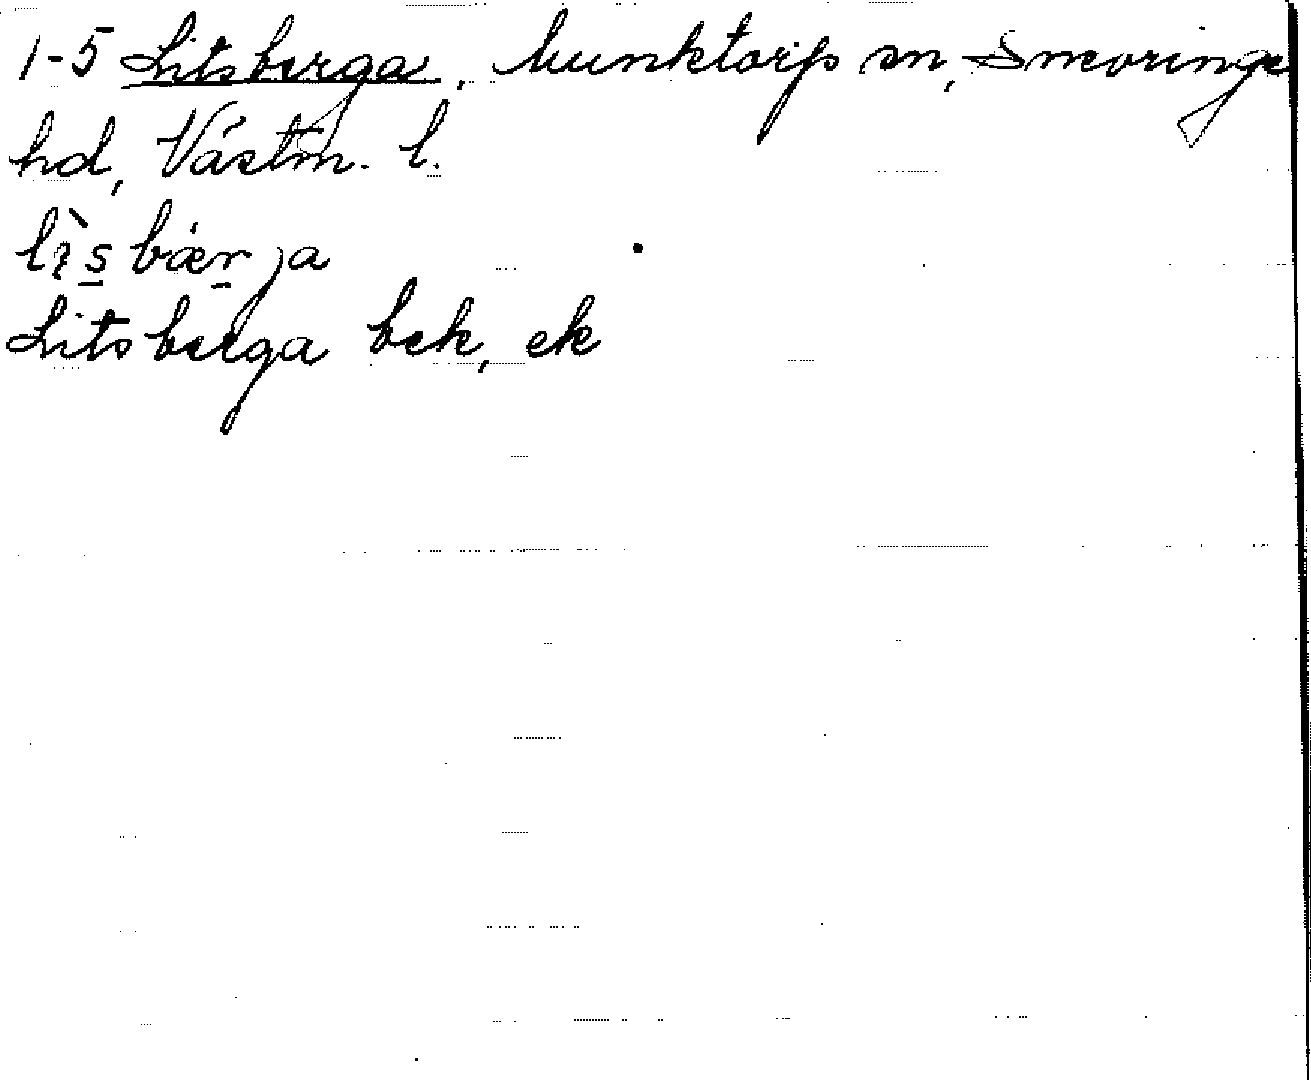 1-5 Litsberga, Munktorps sn, Snevringe
hd, Västm. l.
lìs bærja
Litsberga bek, ek